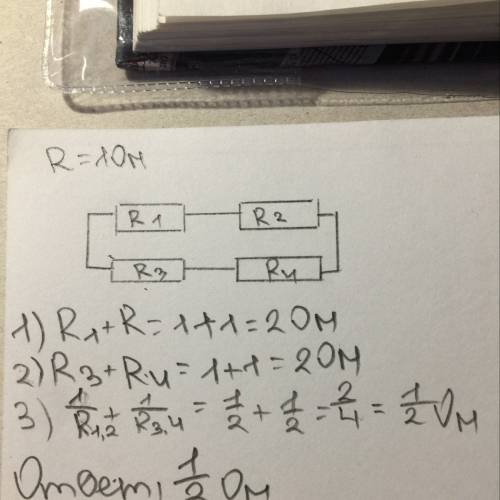 R = 1 Ом
R1 R2
R3 R4
1) R1 + R = 1 + 1 = 2 Ом
2) R3 + R4 = 1 + 1 = 2 Ом
3) 1/R1,2 + 1/R3,4 = 1/2 + 1/2 = 2/4 = 1/2 Ом
Ответ: 1/2 Ом